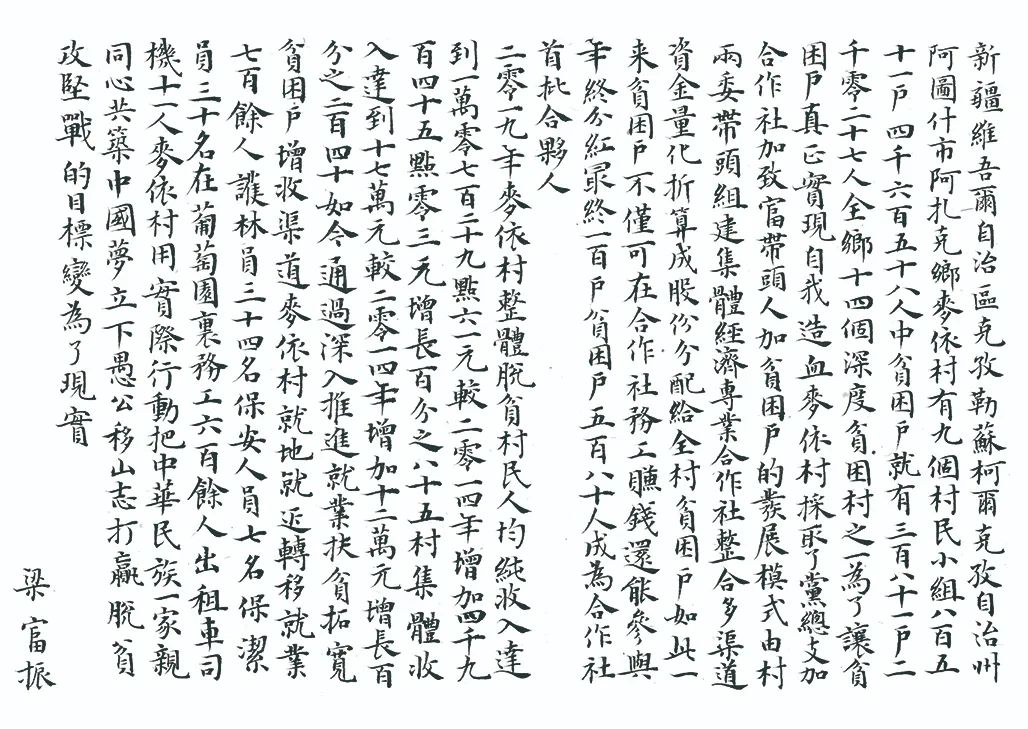 新疆維吾爾自治區克孜勒蘇柯爾克孜自治州
阿圖什市阿扎克鄉麥依村有九個村民小組八百五
十一戶四千六百五十八人中貧困戶就有三百八十一戶二
千零二十七人全鄉十四個深度貧困村之一為了讓貧
困戶真正實現自我造血麥依村採取了黨總支加
合作社加致富帶頭人加貧困戶的發展模式由村
兩委帶頭組建集體經濟專業合作社整合多渠道
資金量化折算成股份分配給全村貧困戶如此一
来貧困戶不僅可在合作社務工賺錢還能參與
年終分紅最終一百戶貧困戶五百八十人成為合作社
首批合夥人
二零一九年麥依村整體脫貧村民人均純收入達
到一萬零七百二十九點六一元較二零一四年增加四千九
百四十五點零三元增長百分之八十五村集體收
入達到十七萬元較二零一四年增加十二萬元增長百
分之二百四十如今通過深入推進就業扶貧拓寬
貧困戶增收渠道麥依村就地就近轉移就業
七百餘人護林員三十四名保安人員七名保潔
員三十名在葡萄園裏務工六百餘人出租車司
機十一人麥依村用實際行動把中華民族一家親
同心共築中國夢立下愚公移山志打贏脫貧
攻堅戰的目標變為了現實
梁富振